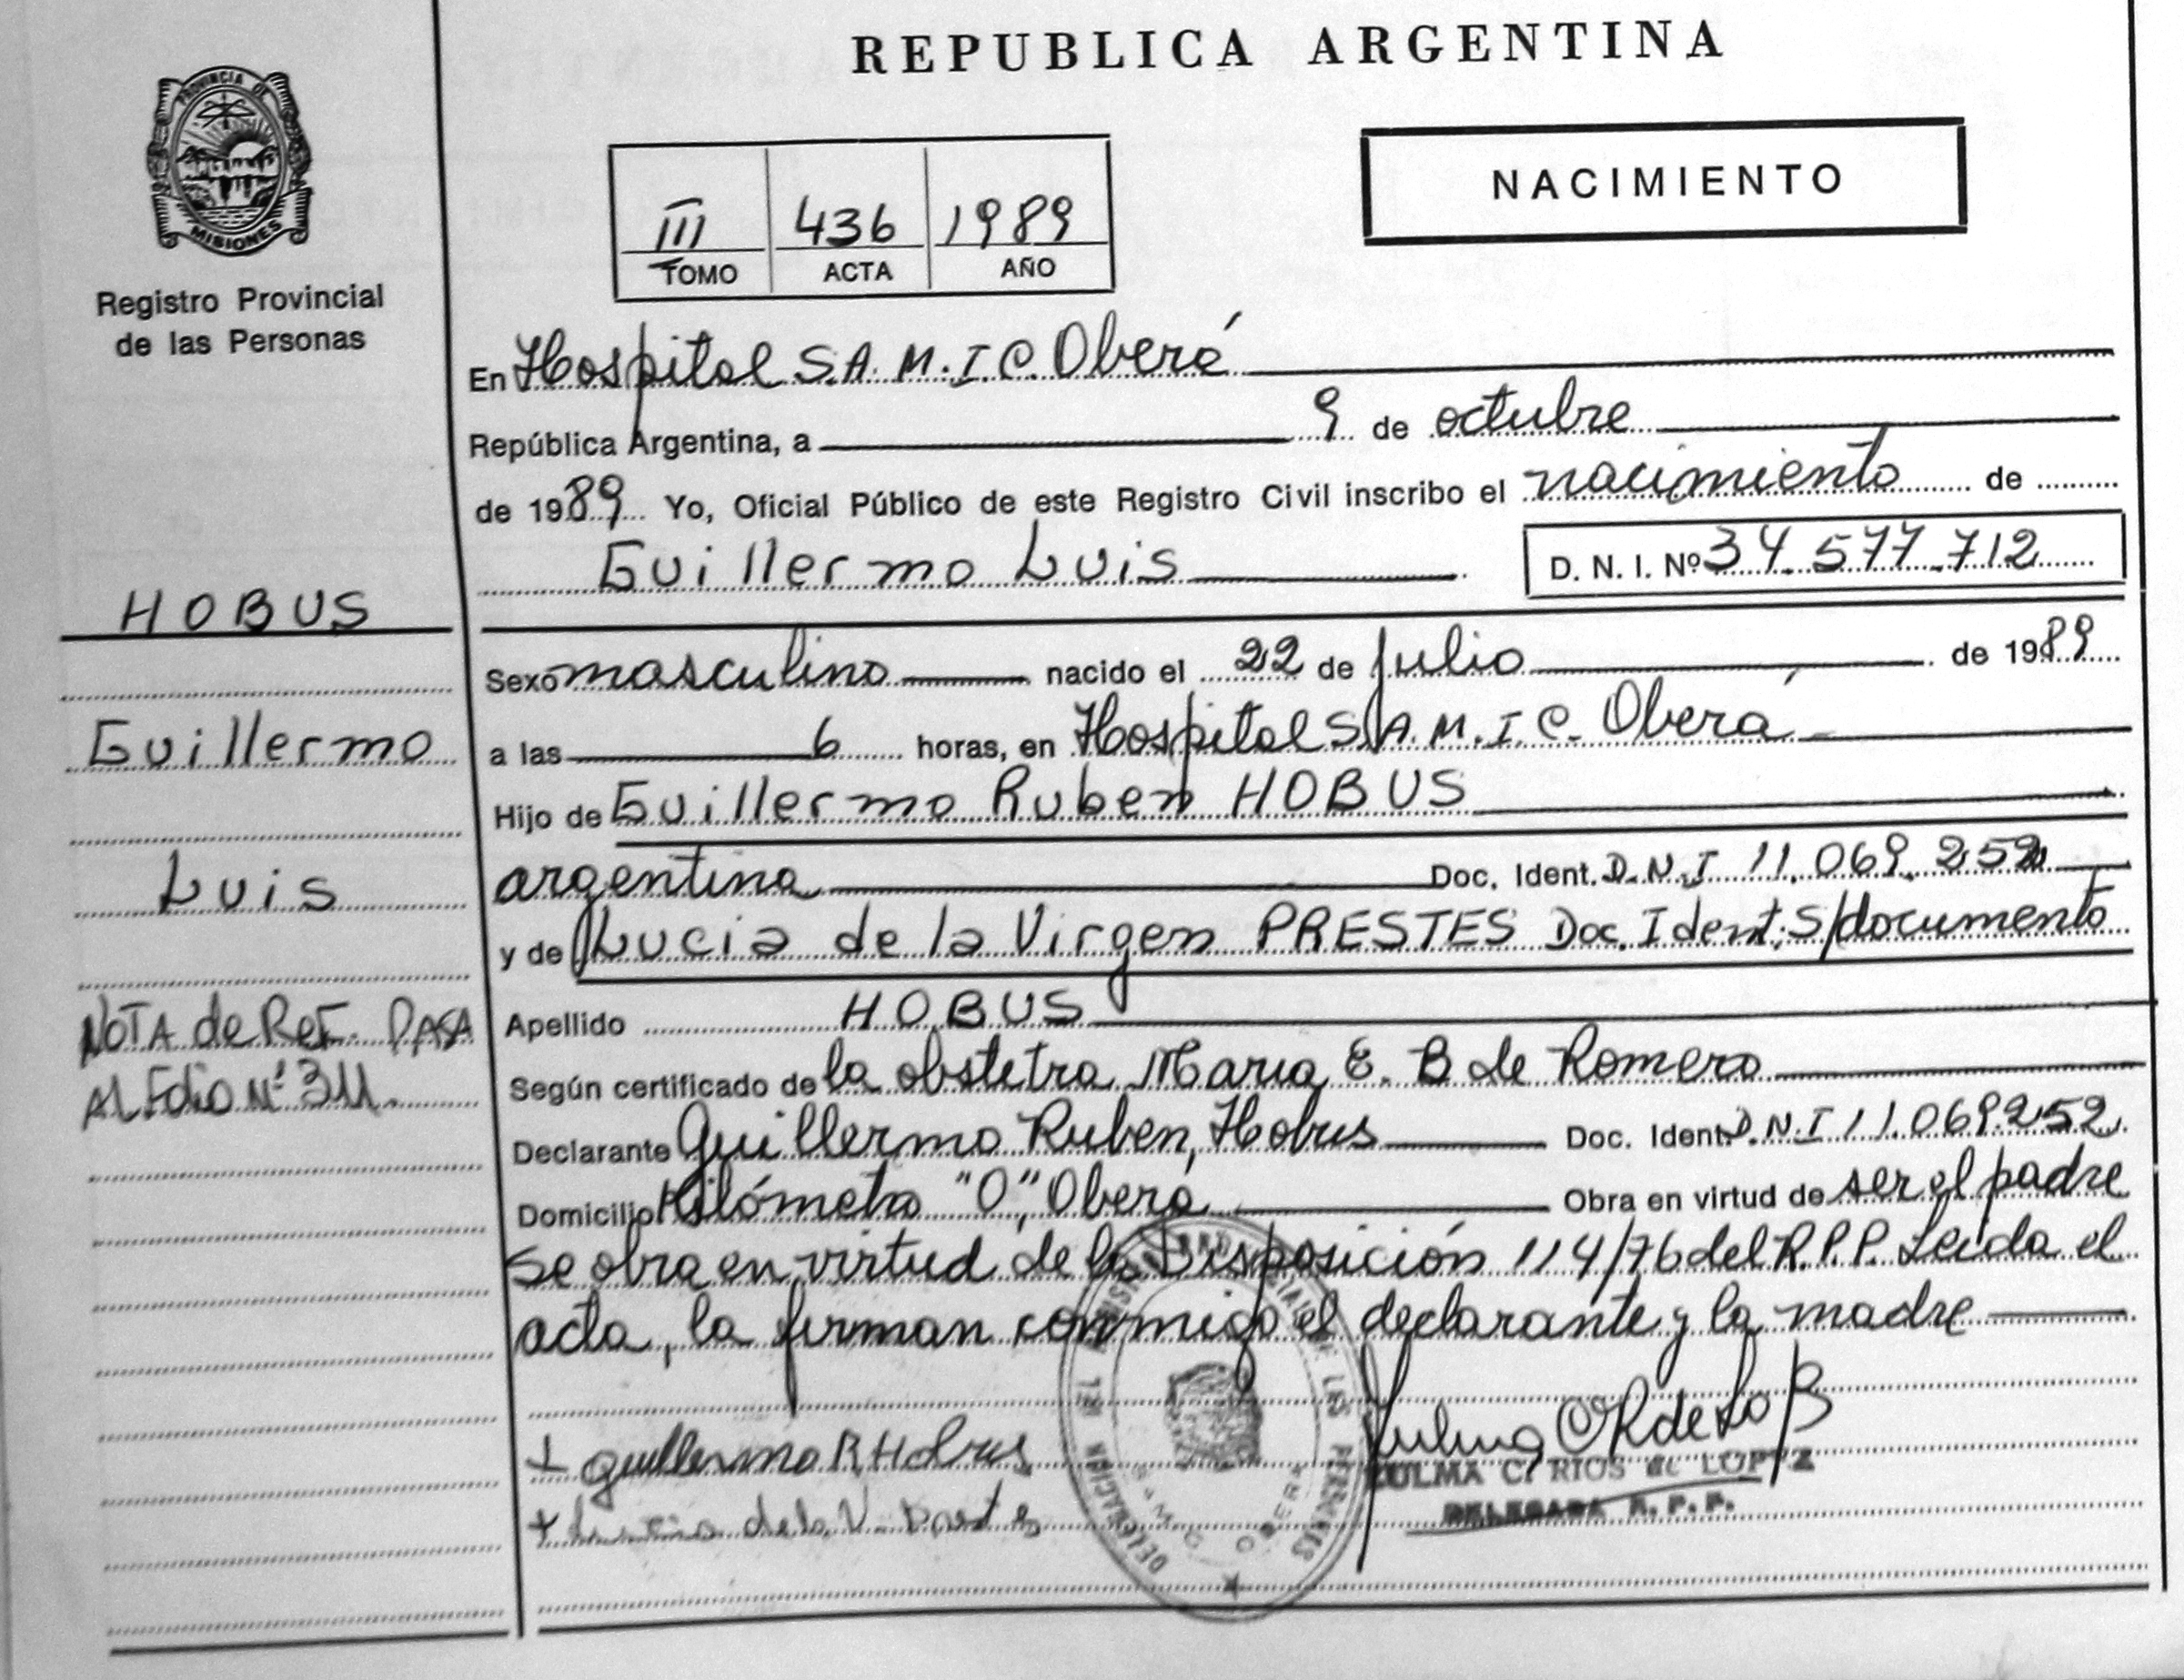 REPUBLICA ARGENTINA
PROVINCIA DE
MISIONES
Registro Provincial
de las Personas
NACIMIENTO
III 436 1989
TOMO ACTA AÑO
En Hospital S.A.M.I.C. Oberá
República Argentina, a 9 de octubre
de 1989 Yo, Oficial Público de este Registro Civil inscribo el nacimiento de
Guillermo Luis D. N. I. Nº 34.577.712
HOBUS
Guillermo
Luis
NOTA de Ref. PASA
AL Folio Nº 311.
Sexo masculino nacido el 22 de julio de 1989
a las 6 horas, en Hospital S.A.M.I.C. Oberá
Hijo de Guillermo Ruben HOBUS
argentina Doc. Ident. D.N.I 11.069.252
y de Lucia de la Virgen PRESTES Doc. Ident: S/documento
Apellido HOBUS
Según certificado de la obstetra Maria E. B de Romero
Declarante Guillermo Ruben, Hobus Doc. Ident. D.N.I 11.069.252
Domicilio Kilómetro "0", Obera Obra en virtud de ser el padre
Se obra en virtud de la Disposición 114/76 del R.P.P. Leida el
acta, la firman conmigo el declarante y la madre
+ Guillermo R Hobus
+ de la V.
ZULMA C. RIOS de LOPEZ
DELEGADA R. P. P.
DELEGACION
PERSONAS
OBERA